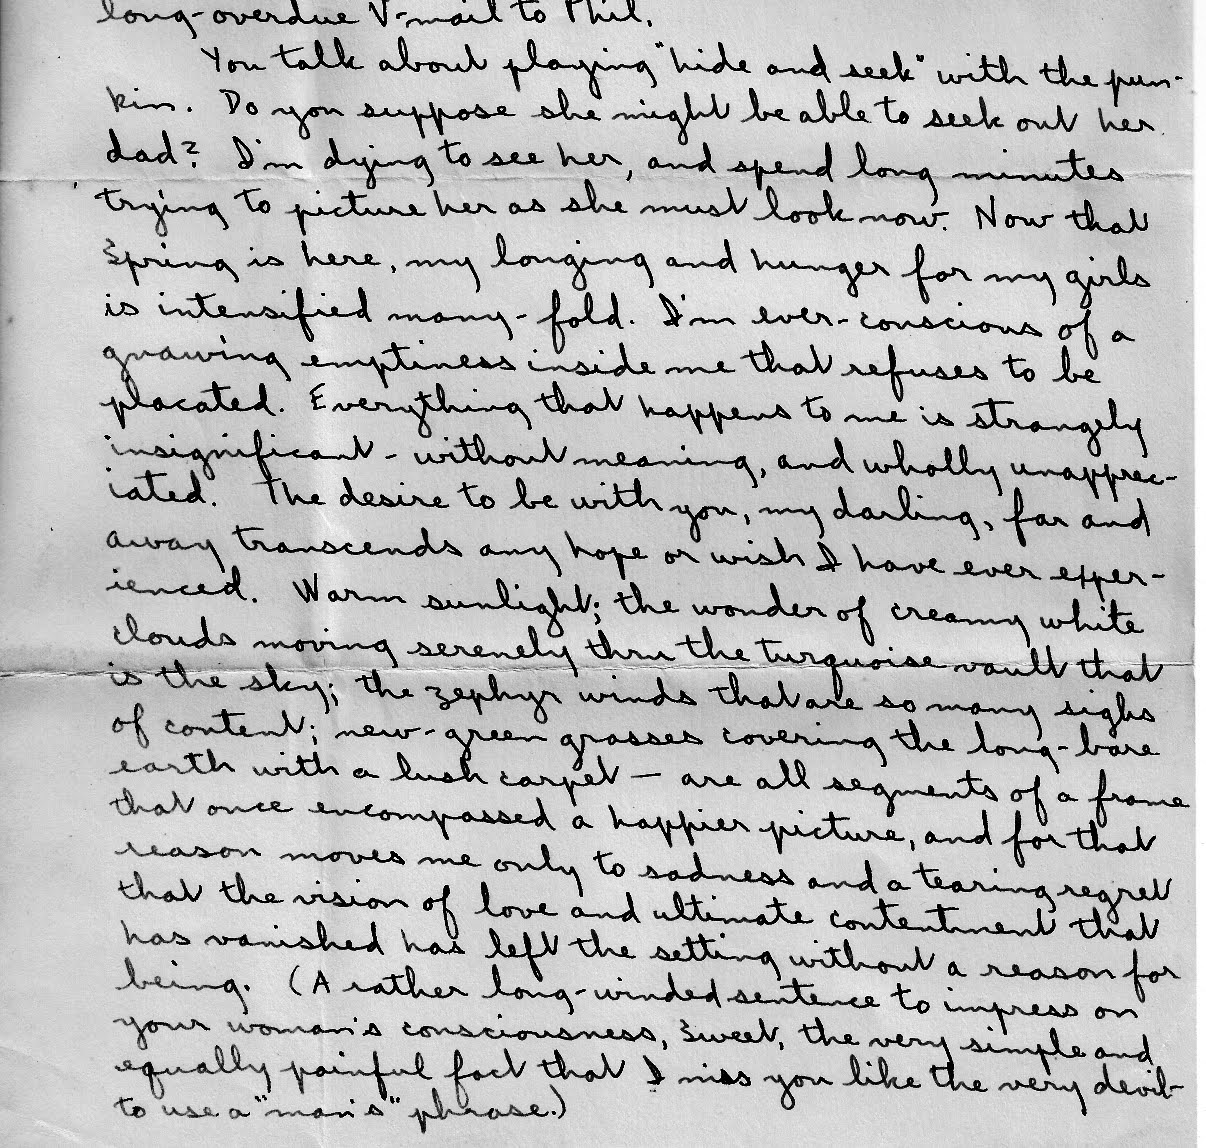 long-overdue V-mail to Phil.
You talk about playing "hide and seek" with the pun-
kin. Do you suppose she might be able to seek out her
dad? I'm dying to see her, and spend long minutes
trying to picture her as she must look now. Now that
Spring is here, my longing and hunger for my girls
is intensified many-fold. I'm ever-conscious of a
gnawing emptiness inside me that refuses to be
placated. Everything that happens to me is strangely
insignificant - without meaning, and wholly unapprec-
iated. The desire to be with you, my darling, far and
away transcends any hope or wish I have ever exper-
ienced. Warm sunlight; the wonder of creamy white
clouds moving serenely thru the turquoise vault that
is the sky; the zephyr winds that are so many sighs
of content; new-green grasses covering the long-bare
earth with a lush carpet — are all segments of a frame
that once encompassed a happier picture, and for that
reason moves me only to sadness and a tearing regret
that the vision of love and ultimate contentment that
has vanished has left the setting without a reason for
being. (A rather long-winded sentence to impress on
your woman's consciousness, Sweet, the very simple and
equally painful fact that I miss you like the very devil-
to use a "man's" phrase.)